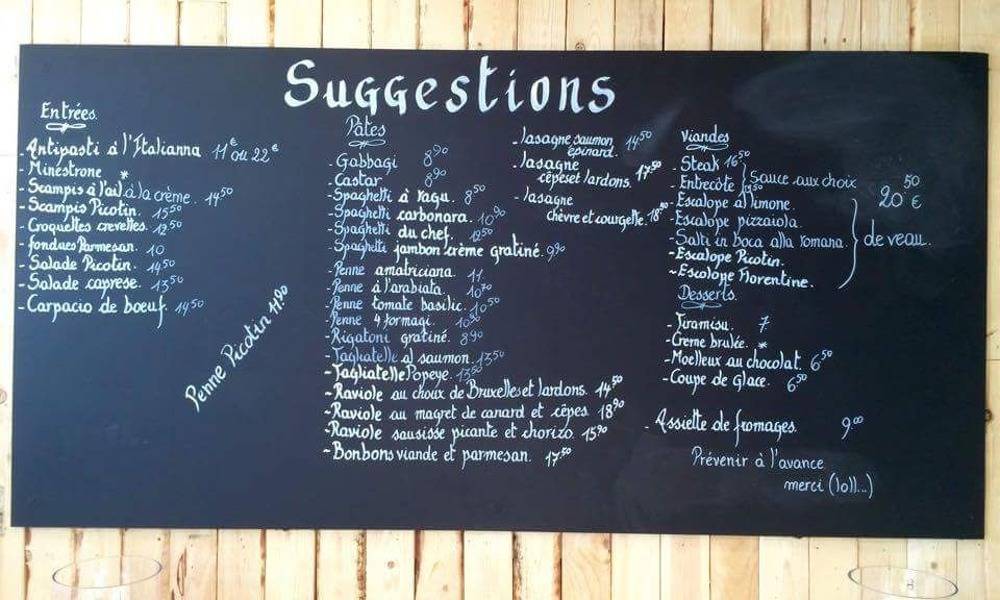 Suggestions
Entrées
- Antipasti à l'Italianna 11€ ou 22€
- Minestrone *
- Scampis à l'ail à la crème. 14⁵⁰
- Scampis Picotin. 15⁵⁰
- Croquettes crevettes. 12⁵⁰
- fondues Parmesan. 10
- Salade Picotin. 14⁵⁰
- Salade caprese. 13⁵⁰
- Carpacio de boeuf. 14⁵⁰
Penne Picotin 11⁹⁰
Pâtes
- Gabbagi 8⁹⁰
- Castar 8⁹⁰
- Spaghetti à ragu. 8⁵⁰
- Spaghetti carbonara. 10⁹⁰
- Spaghetti du chef. 12⁵⁰
- Spaghetti jambon crème gratiné. 9⁹⁰
- Penne amatriciana. 11
- Penne à l'arabiata. 10⁷⁰
- Penne tomate basilic. 10⁵⁰
- Penne 4 formagi. 10⁹⁰
- Rigatoni gratiné. 8⁹⁰
- Tagliatelle al saumon. 13⁵⁰
- Tagliatelle Popeye. 13⁵⁰
~ Raviole au choux de Bruxelles et lardons. 14⁵⁰
~ Raviole au magret de canard et cêpes 18⁹⁰
~ Raviole sausisse picante et chorizo. 15⁹⁰
~ Bonbons viande et parmesan. 17⁵⁰
- lasagne saumon 14⁵⁰
épinard.
- lasagne
cêpes et lardons. 17⁵⁰
- lasagne
chèvre et courgette. 18⁹⁰
Viandes
- Steak 16⁵⁰
- Entrecôte
Sauce aux choix
- Escalope al limone.
- Escalope pizzaiola.
- Salti in boca alla romana.
~ Escalope Picotin.
~ Escalope Florentine.
20⁵⁰ €
de veau.
Desserts
- Tiramisu. 7
- Creme brulée. *
- Moelleux au chocolat. 6⁵⁰
- Coupe de Glace. 6⁵⁰
- Assiette de fromages. 9⁰⁰
Prévenir à l'avance
merci (loll...)